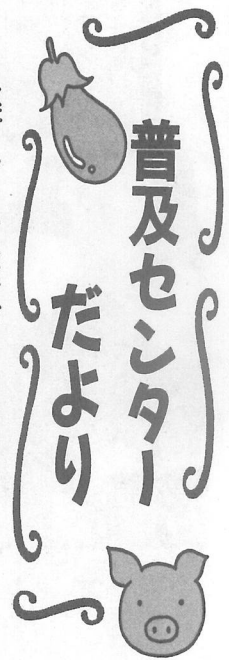 普及センター
だより